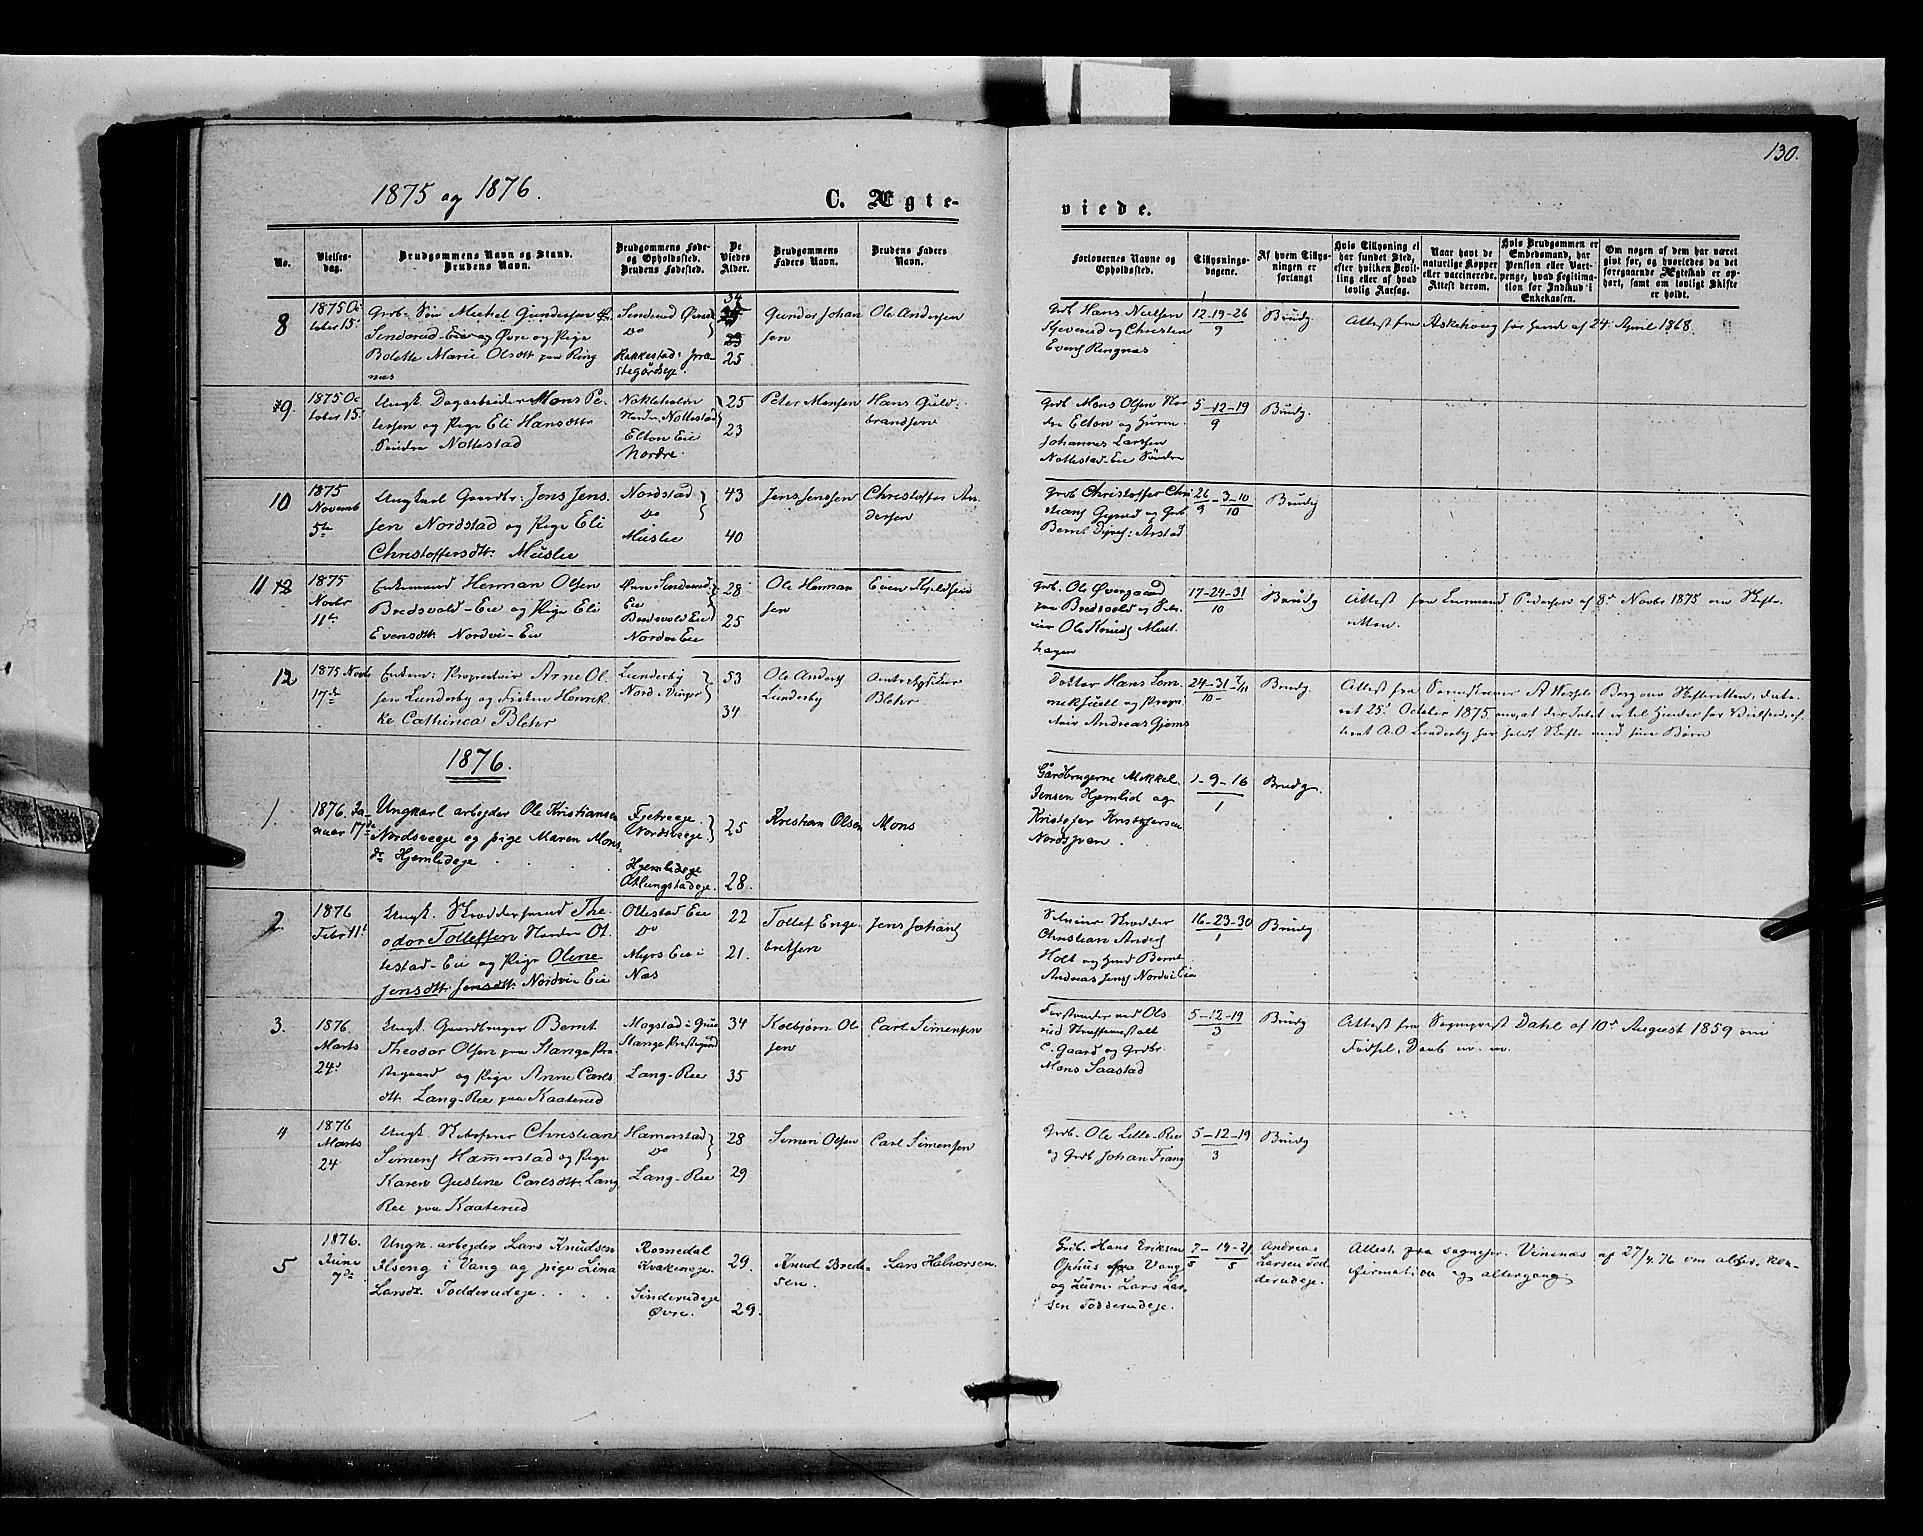 130.
1875 og 1876.
C. Ægte-
viede.
No.
Vielses-
dag.
Brudgommens Navn og Stand.
Brudens Navn.
Brudgommens Føde-
og Opholdssted.
Brudens Fødested.
De
Viedes
Alder.
Brudgommens
Faders Navn.
Brudens Faders
Navn.
Forlovernes Navne og
Opholdssted.
Tillysnings-
dagene.
Af hvem Tillys-
ningen er
forlangt
Hvis Tillysning ei
har fundet Sted,
efter hvilken Bevil-
ling eller af hvad
lovlig Aarsag.
Naar havt de
naturlige Kopper
eller vaccinerede.
Attest derom.
Hvis Brudgommen er
Embedsmand, har
Pension eller Vart-
penge, hvad Legitima-
tion for Indskud i
Enkekassen.
Om nogen af dem har været
gift før, og hvorledes da det
foregaaende Ægteskab er op-
hørt, samt om lovligt Skifte
er holdt.
8
1875 Oc
tober 15.
Grb. Søn Mikel Gundersen
Sinderud-Eie og Øvre og Pige
Bolette Marie Olsdtr paa Ring
næs
Sinderud Øvre
Do
Rakkestad: Præ
stegårdseje.
34
25
Gunder Johan
sen
Ole Andersen
Grb Hans Nielsen
Skjeverud og Christen
Evens Ringnæs
12-19-26
9
Brudg.
Attest fra Askehoug for hende af 24 April 1868.
9.
1875 Oc
tober 15.
Ungk. Dagarbeider Mons Pe-
tersen og Pige Eli Hansdtr
Søndre Nottestad
Nakleholen
Nordre Nottestad
Elton Eie
Nordre.
25
23
Peter Monsen
Hans Guld-
brandsen
Grb Mons Olsen Nor
dre Elton og Husm.
Johannes Larsen
Nottestad-Eie Søndre
5-12-19
9
Brudg.
10
1875
Novemb
5te
Ungkarl Gaardbr: Jens Jens-
sen Nordstad og Pige Eli
Christoffersdtr: Muslie
Nordstad
Do
Muslie
43
40
Jens Jenssen
Christoffer An-
dersen
Grb Christoffer Chri
stians Gyrud og Grb
Bernt Arstad
26-3-10
9 10
Brudg
11
1875
Novbr
11te
Enkemand Herman Olsen
Bredsvold-Eie og Pige Eli
Evensdtr. Nordvi-Eie
Øvre Sinderud
Eie
Bredsvold Eie
Nordvi Eie
28
25
Ole Herman
sen
Even Kjeldsen
Grb. Ole Øvergaard
paa Bredsvold og
Ole Knuds
hagen
17-24-31
10
Brudg
Attest fra Lensmand Pedersen af 8de Novbr 1875 om Skifte-
retten.
12
1875 Novb
17de
Enkem: Proprietair Arne Ol-
sen Lunderby og Frøken Henrik-
ke Cathinca Blehr
Lunderby
Nord: Vinger
53
34
Ole Anders
Lunderby
Amtschirur
Blehr
Doktor Hans Lem-
mekfuell og Propri
tair Andreas Gjems
24-31-7/11
10
Brudg
Attest fra Sorenskriver A Wessel Berg om Skifteretten, date-
ret 25de October 1875 om, at der Intet er til Hinder for Vielsen
A.O Lunderby har holdt Skifte med sine Børn
1876.
1.
1876. Ja-
nuar 17de
Ungkarl arbejder Ole Kristiansen
Nordsveeje og pige Maren Mons-
dr Hjemlideje
Fjetreeje.
Nordsveeje
Hjemlideje
Atlungstadeje.
25
28.
Kristian Olsen
Mons
Gårdbrugerne Mikkel
Jensen Hjemlid og
Kristofer Kristofersen
Nordsveen.
1-9-16
1
Brudg.
2
1876
Febr 11te
Ungk. Skrædersvend The-
odor Tollefsen Nordre Ot-
testad-Eie og Pige Oline
Jensdtr. Jensdtr. Nordvie Eie
Ottestad Eie
Do
Myrs Eie i
Næs
22
21.
Tollef Enge-
bretsen
Jens Johans
Selveier Skrædder
Christian Anders
Holt og Husmd Bernt
Andreas Jens Nordvi Eie
16-23-30
1
Brudg
3.
1876
Marts
24de
Ungk. Gaardbruger Bernt
Theodor Olsen paa Stange Præ-
stegaard og Pige Anne Carls
dtr. Lang-Ree paa Kaaterud
Mogstad i Grue
Stange Prestegaard
Lang-Ree
34
35
Kolbjørn Ol
sen
Carl Simensen
Forstander ved Ols
rud Straffeanstalt
C. Gaard og Grdbr.
Mons Saastad
5-12-19
3
Brudg
Attest fra Sogneprest Dahl af 10de August 1859 om
Fødsel, Daab m. m.
4
1876
Marts
24
Ungk. Skibsfører Christian
Simens Hamerstad og Pige
Karen Gustine Carlsdtr. Lang
Ree paa Kaaterud
Hamerstad
Do
Lang-Ree
28
29
Simen Olsen
Carl Simensen
Grb. Ole Lille-Ree
og Grdb Johan Frang
5-12-19
3
Brudg
5
1876.
Juni
7de
Ungk. arbejder Lars Knudsen
Ilseng i Vang og pige Lina
Larsdr. Todderudeje. . . .
Romedal
Kvakeneje.
Sinderudeje
Øvre.
29.
29.
Knud Brede-
sen.
Lars Halvorsen.
Grdb. Hans Eriksen
Ophus fra Vang
og Husm. Lars Lar-
sen Todderudeje.
7-14-21
5 5
Andreas
Larsen Tod-
derudeje.
Attest fra sognepr. Vinsnæs af 27/4.76 om alder, kon-
firmation og altergang